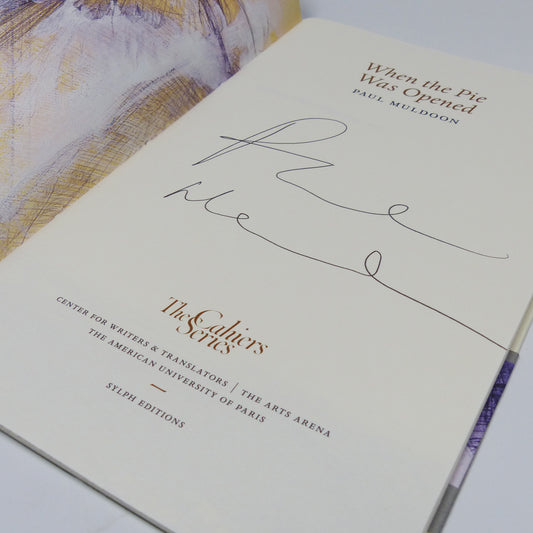 When the Pie
Was Opened
PAUL MULDOON
The Cahiers
Series
CENTER FOR WRITERS & TRANSLATORS | THE ARTS ARENA
THE AMERICAN UNIVERSITY OF PARIS
—
SYLPH EDITIONS